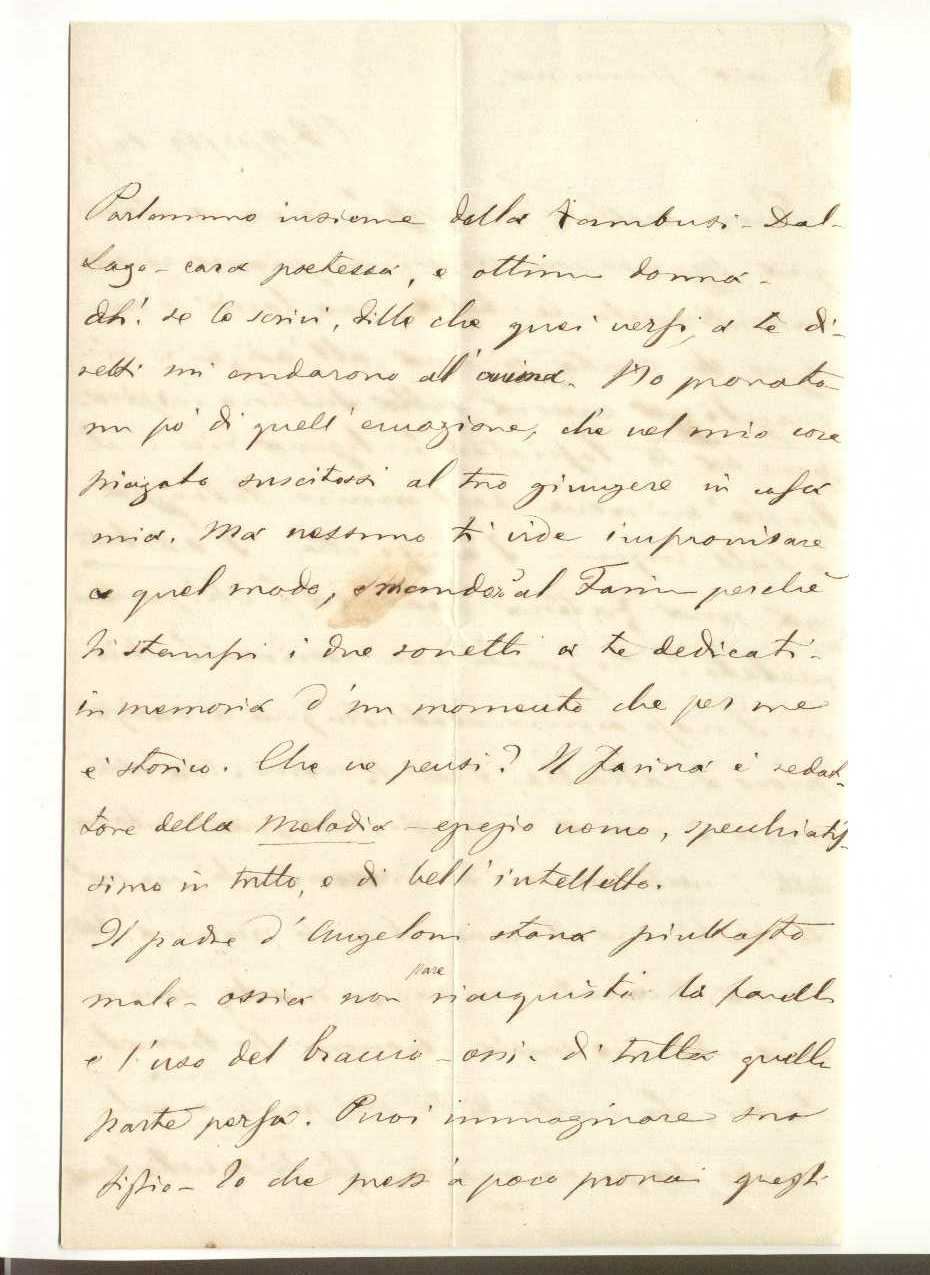 Parlammo insieme della Tambusi-Dal-
Lago - cara poetessa, e ottima donna -
Ah! se le scrivi, dille che quei versi, a te di-
retti mi andarono all'anima. Ho provato
un pò di quell'emozione, che nel mio core
piagato suscitossi al tuo giungere in casa
mia. Ma nessuno ti vide improvisare
a quel modo, manderò al Farina perchè
ti stampi i due sonetti a te dedicati -
in memoria d'un momento che per me
è storico. Che ne pensi? Il Farina è redat-
tore della Melodia - egregio uomo, specchiatis-
simo in tutto, e di bell'intelletto.
Il padre d'Angeloni stava piuttosto
male - ossia non pare riacquisti la favella
e l'uso del braccio - ossia di tutta quella
parte persa. Puoi immaginare suo
figlio - Io che press'a poco provai quegli